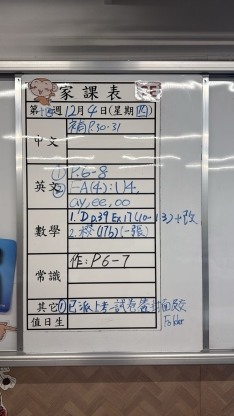 家課表
第十四週 12月4日(星期四)
中文 補P.30-31
① P.6-8
英文 ② FA(4): U4,
ay, ee, oo
數學 1. D P.39 Ex17(10-13)+改
2. (17b)(一張)
常識 作:P6-7
其它 ① 已派上考一試卷
Folder
值日生